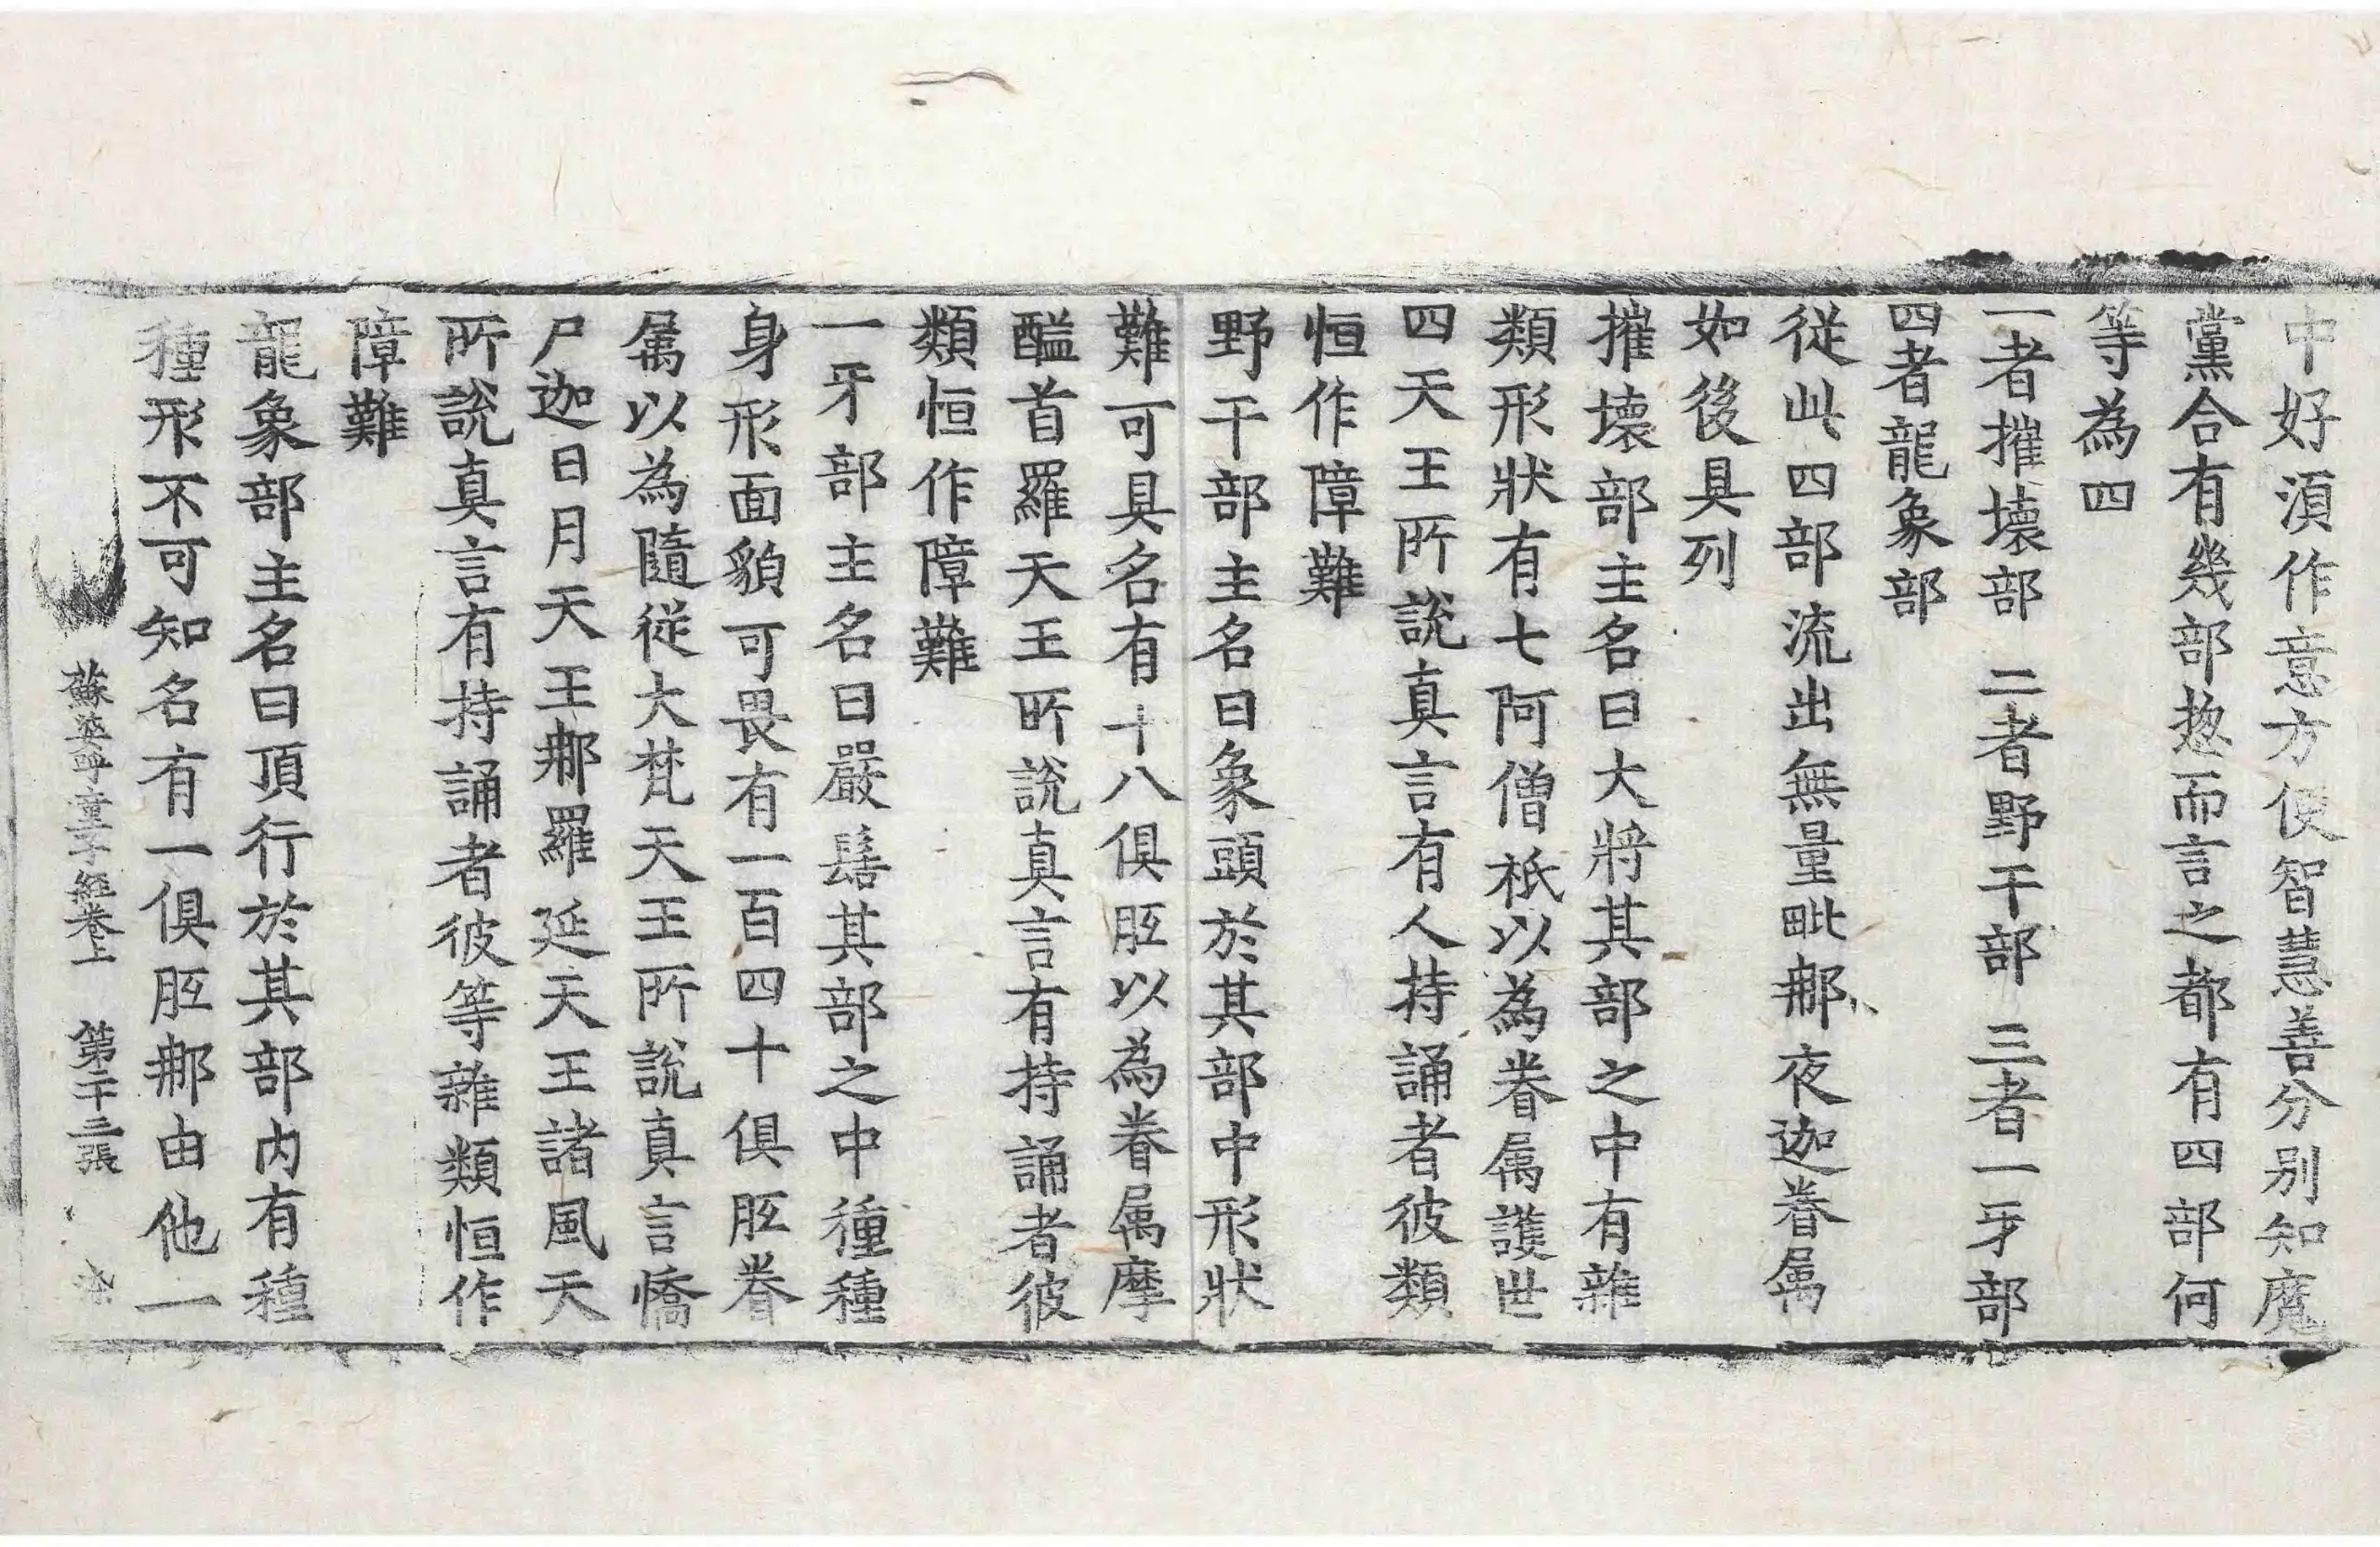 中好湏作意方便智慧善分別知魔
黨合有幾部揔而言之都有四部何
等為四
一者摧壞部 二者野干部 三者一牙部
四者龍象部
從此四部流出無量毗那夜迦眷属
如後具列
摧壞部主名曰大將其部之中有雜
類形狀有七阿僧祇以為眷属護世
四天王所說真言有人持誦者彼類
恒作障難
野干部主名曰象頭於其部中形狀
難可具名有十八俱胝以為眷属摩
醯首羅天王所說真言有持誦者彼
類恒作障難
一牙部主名曰嚴髻其部之中種種
身形面貌可畏有一百四十俱胝眷
属以為隨從大梵天王所說真言憍
尸迦日月天王那羅延天王諸風天
所說真言有持誦者彼等雜類恒作
障難
龍象部主名曰頂行於其部内有種
種形不可知名有一俱胝那由他一
蘇婆呼童子經卷上 第十三張